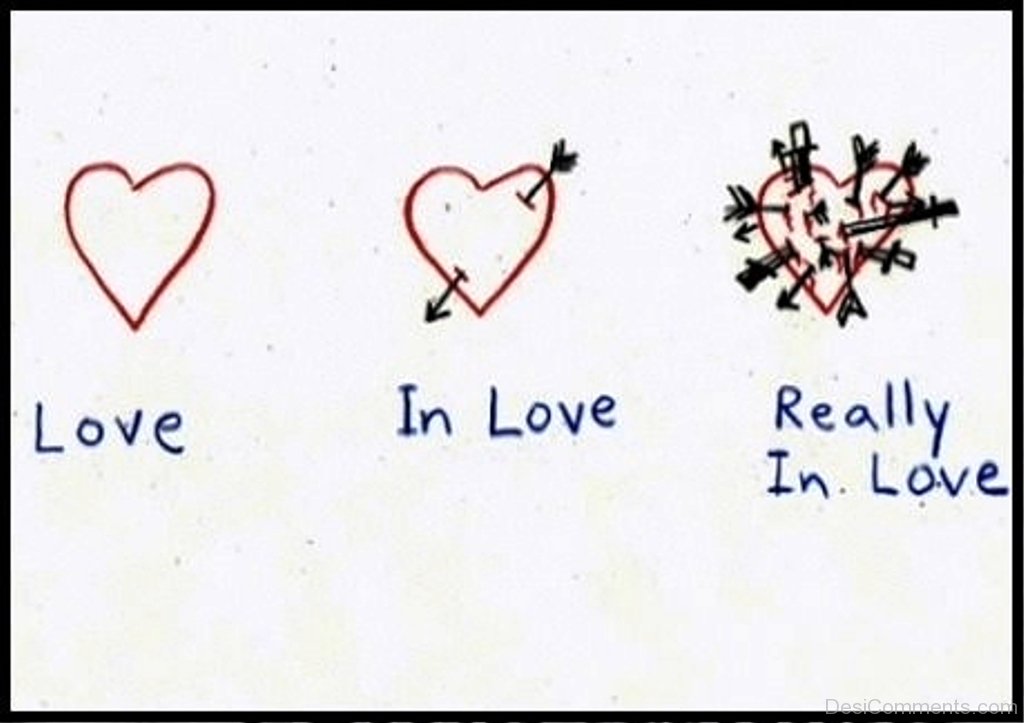 Love
In Love
Really
In Love
DesiComments.com